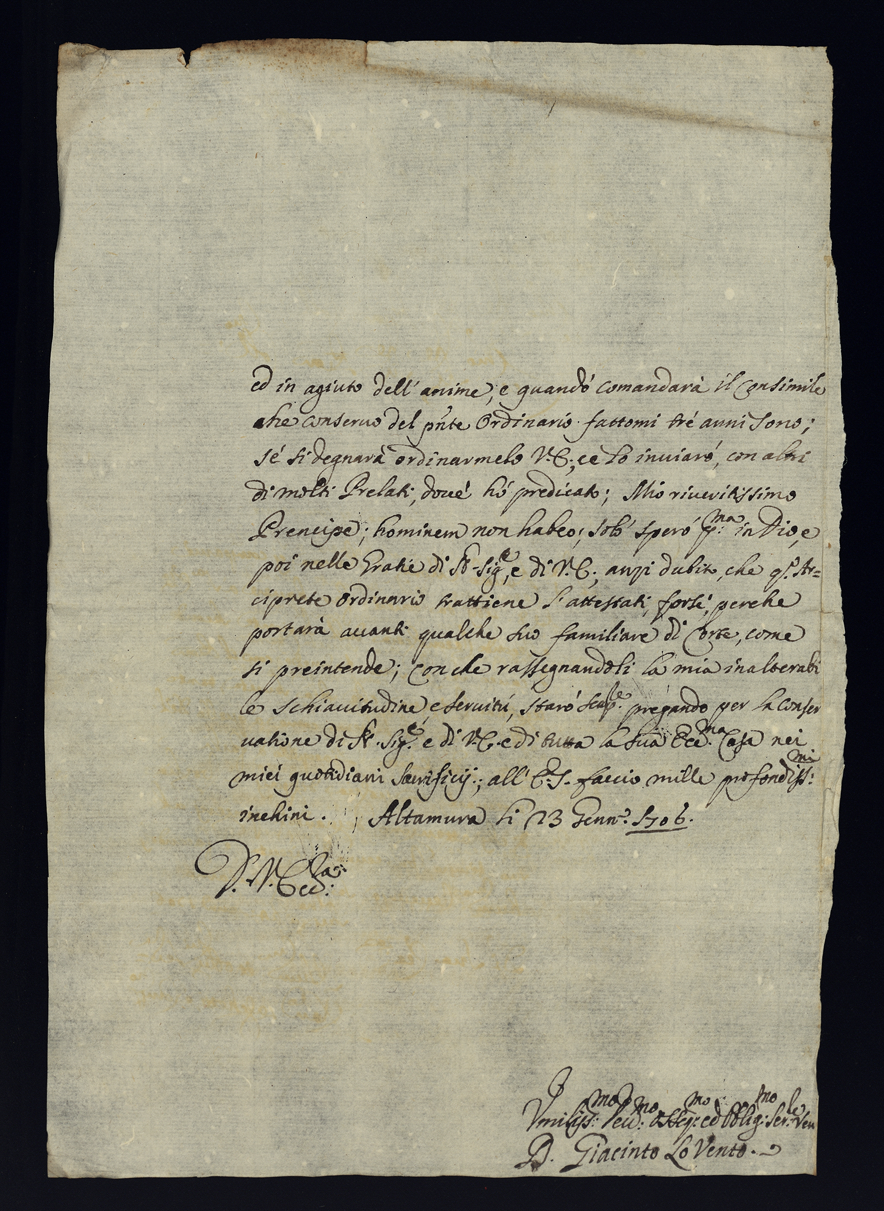 ed in agiuto dell' anime, e quando comandarà il Consimile
che conservo del pñte Ordinario fattomi tré anni sono;
sé si degnarà ordinarmelo V.E., ce lo inviaró, con altri
di molti Prelati, doué hó predicato; Mio riueritissimo
Prencipe; hominem non habeo; solo sperò p:ma in Dio, e
poi nelle Gratie di S. Sig.e, e di V.E., anzi dubito, che q.o Ar=
ciprete Ordinario trattiene l'attestati, forsé, perche
portarà auanti qualche suo familiare di Corte, come
si preintende; Con che rassegnandoli la mia inalterabi
le schiauitudine, e seruitú, staró semp.e pregando per la Conser
uatione di S. Sig.e, e di V.E. e di tutta la sua Ecc.ma Casa nei
miei quotidiani Sacrificij; all' E.S. faccio mille profondiss:mi
inchini. Altamura li 23 Genn.o 1706.
D. V. Ecc:la:
Vmiliss:mo Deu:mo osseq:mo ed Obblig:mo Ser:le Ven
D. Giacinto Lo Vento.